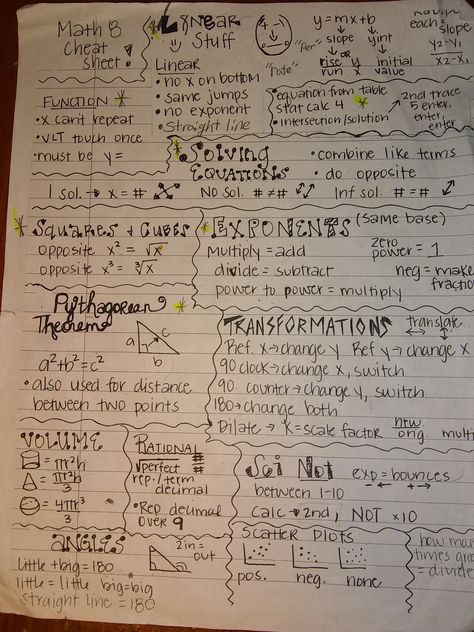 Math 8
Cheat
Sheet!
Linear
Stuff
Linear
• no x on bottom
• same jumps
• no exponent
• Straight line
y=mx+b
slope yint
"Per" or
rise y initial
run x value
"Rate"
each=
Slope
y2-y1
x2-x1
• equation from table
stat calc 4
• Intersection/solution
2nd trace
5 enter,
enter,
enter
Function
• x can't repeat
• VLT touch once
• must be y=
Solving
Equations
• combine like terms
• do opposite
1 sol. → x = #
No sol. # ≠ #
Inf sol. # = #
Squares & Cubes
opposite x² = √x
opposite x³ = ∛x
Exponents (same base)
Multiply = add
divide = subtract
power to power = multiply
zero
power = 1
neg = make
fractio
Pythagorean
Theorem
a c
b
a²+b²=c²
• also used for distance
between two points
Transformations
translate
Ref x → change y Ref y → change x
90 clock → change x, switch
90 counter → change y, switch
180 → change both
Dilate → K = scale factor new
orig. mult
Volume
= πr²h
= πr²h
3
= 4πr³
3
Rational
#
#
√perfect
rep./term
decimal
• Rep decimal
over 9
Sci Not
exp = bounces
- ← → +
between 1-10
Calc → 2nd, NOT x10
Angles
little + big = 180
little = little big = big
straight line = 180
2 in =
out
Scatter Plots
pos. neg. none
how man
times grea
= divide